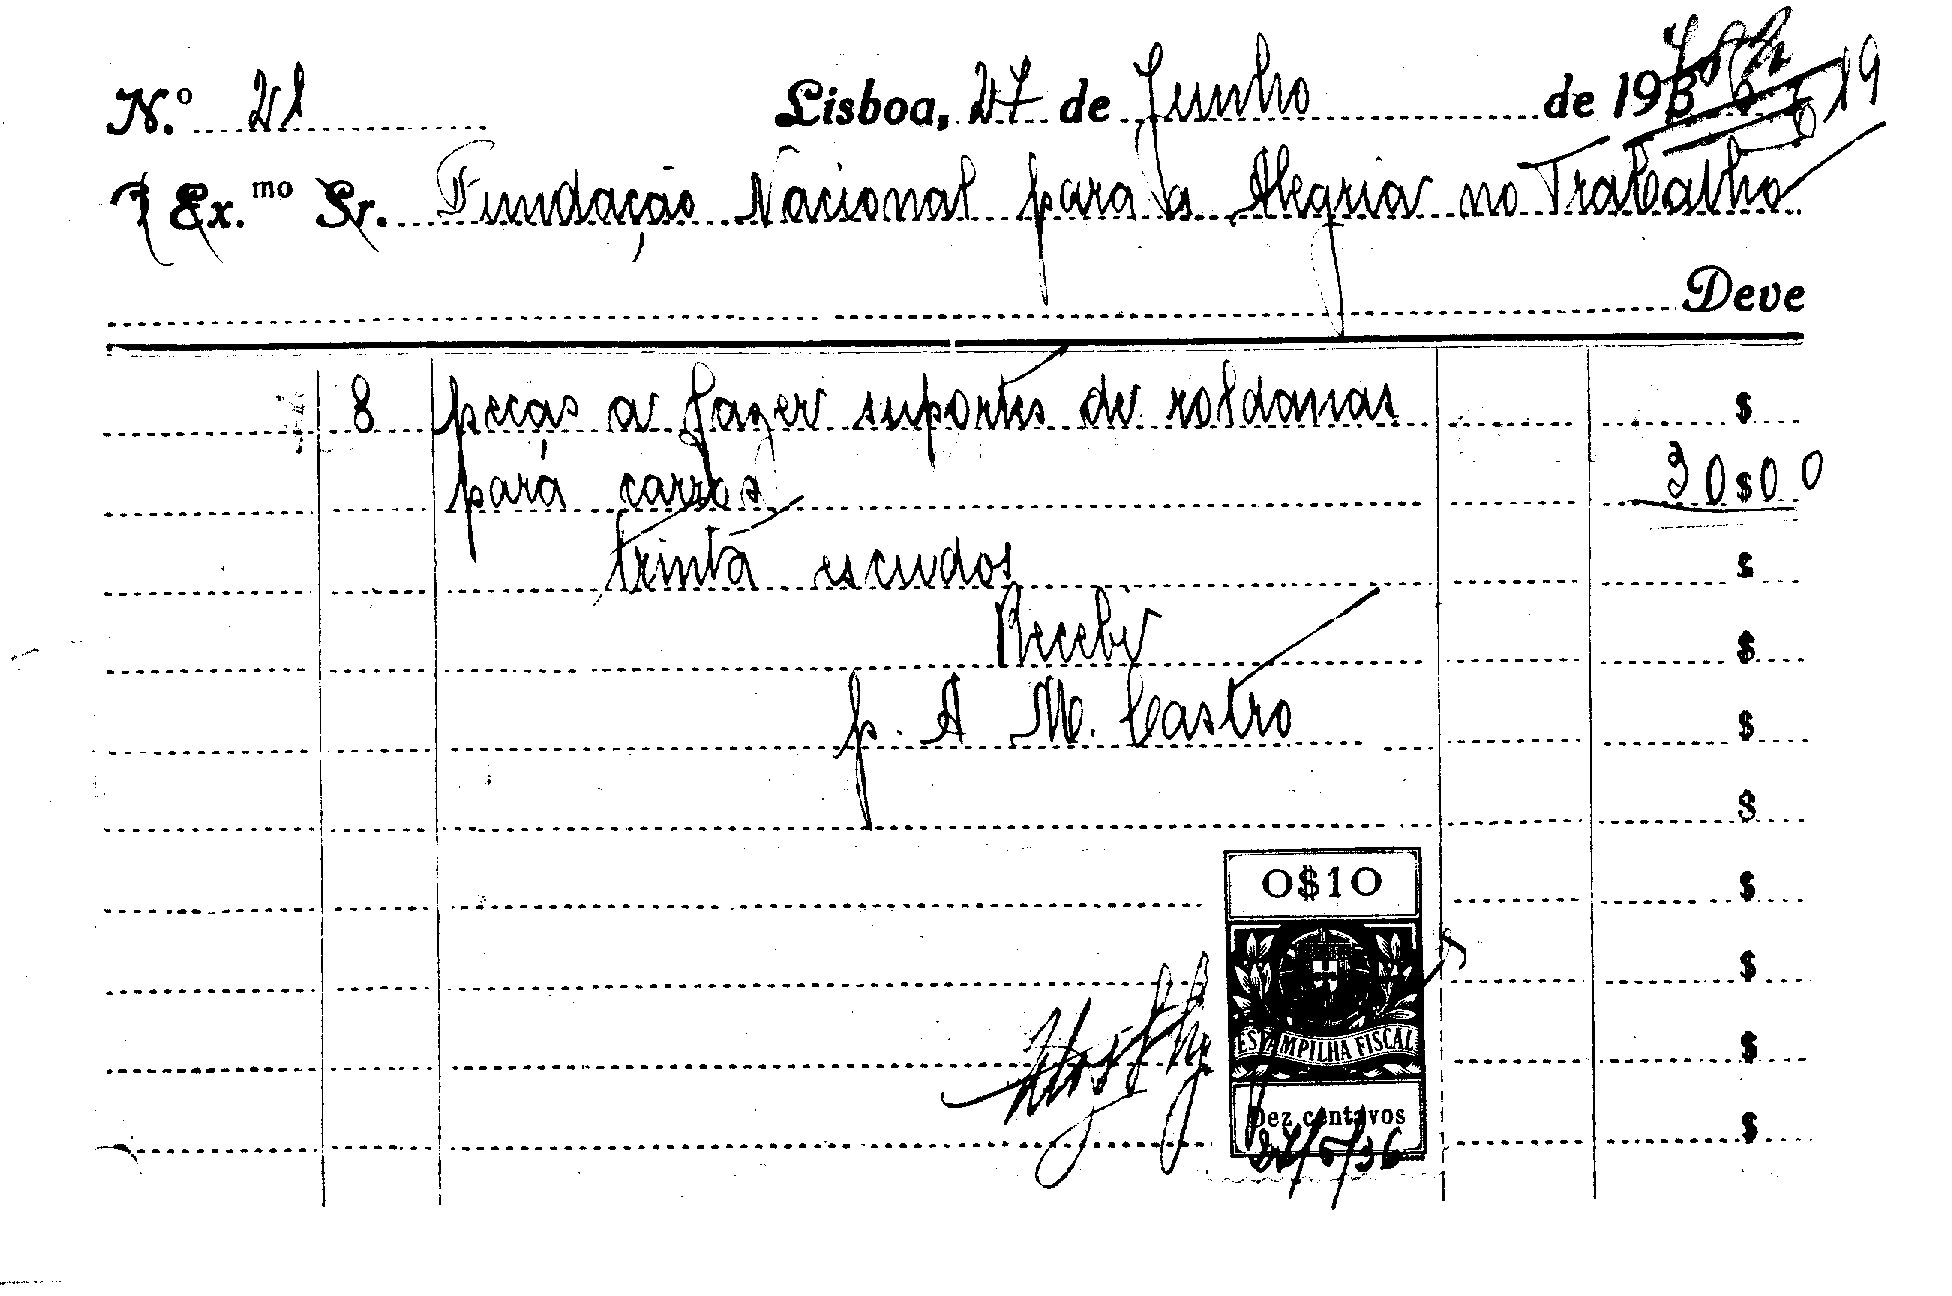 N.º 21 Lisboa, 27 de Junho de 1936
Ex.mo Sr. Fundação Nacional para a Alegria no Trabalho
Deve
8 peças a fazer suportes de roldanas $
para carros 30$00
trinta escudos $
Recebi $
p. A M. Castro $
$
O$1O $
$
ESTAMPILHA FISCAL $
Dez centavos $
27/6/36